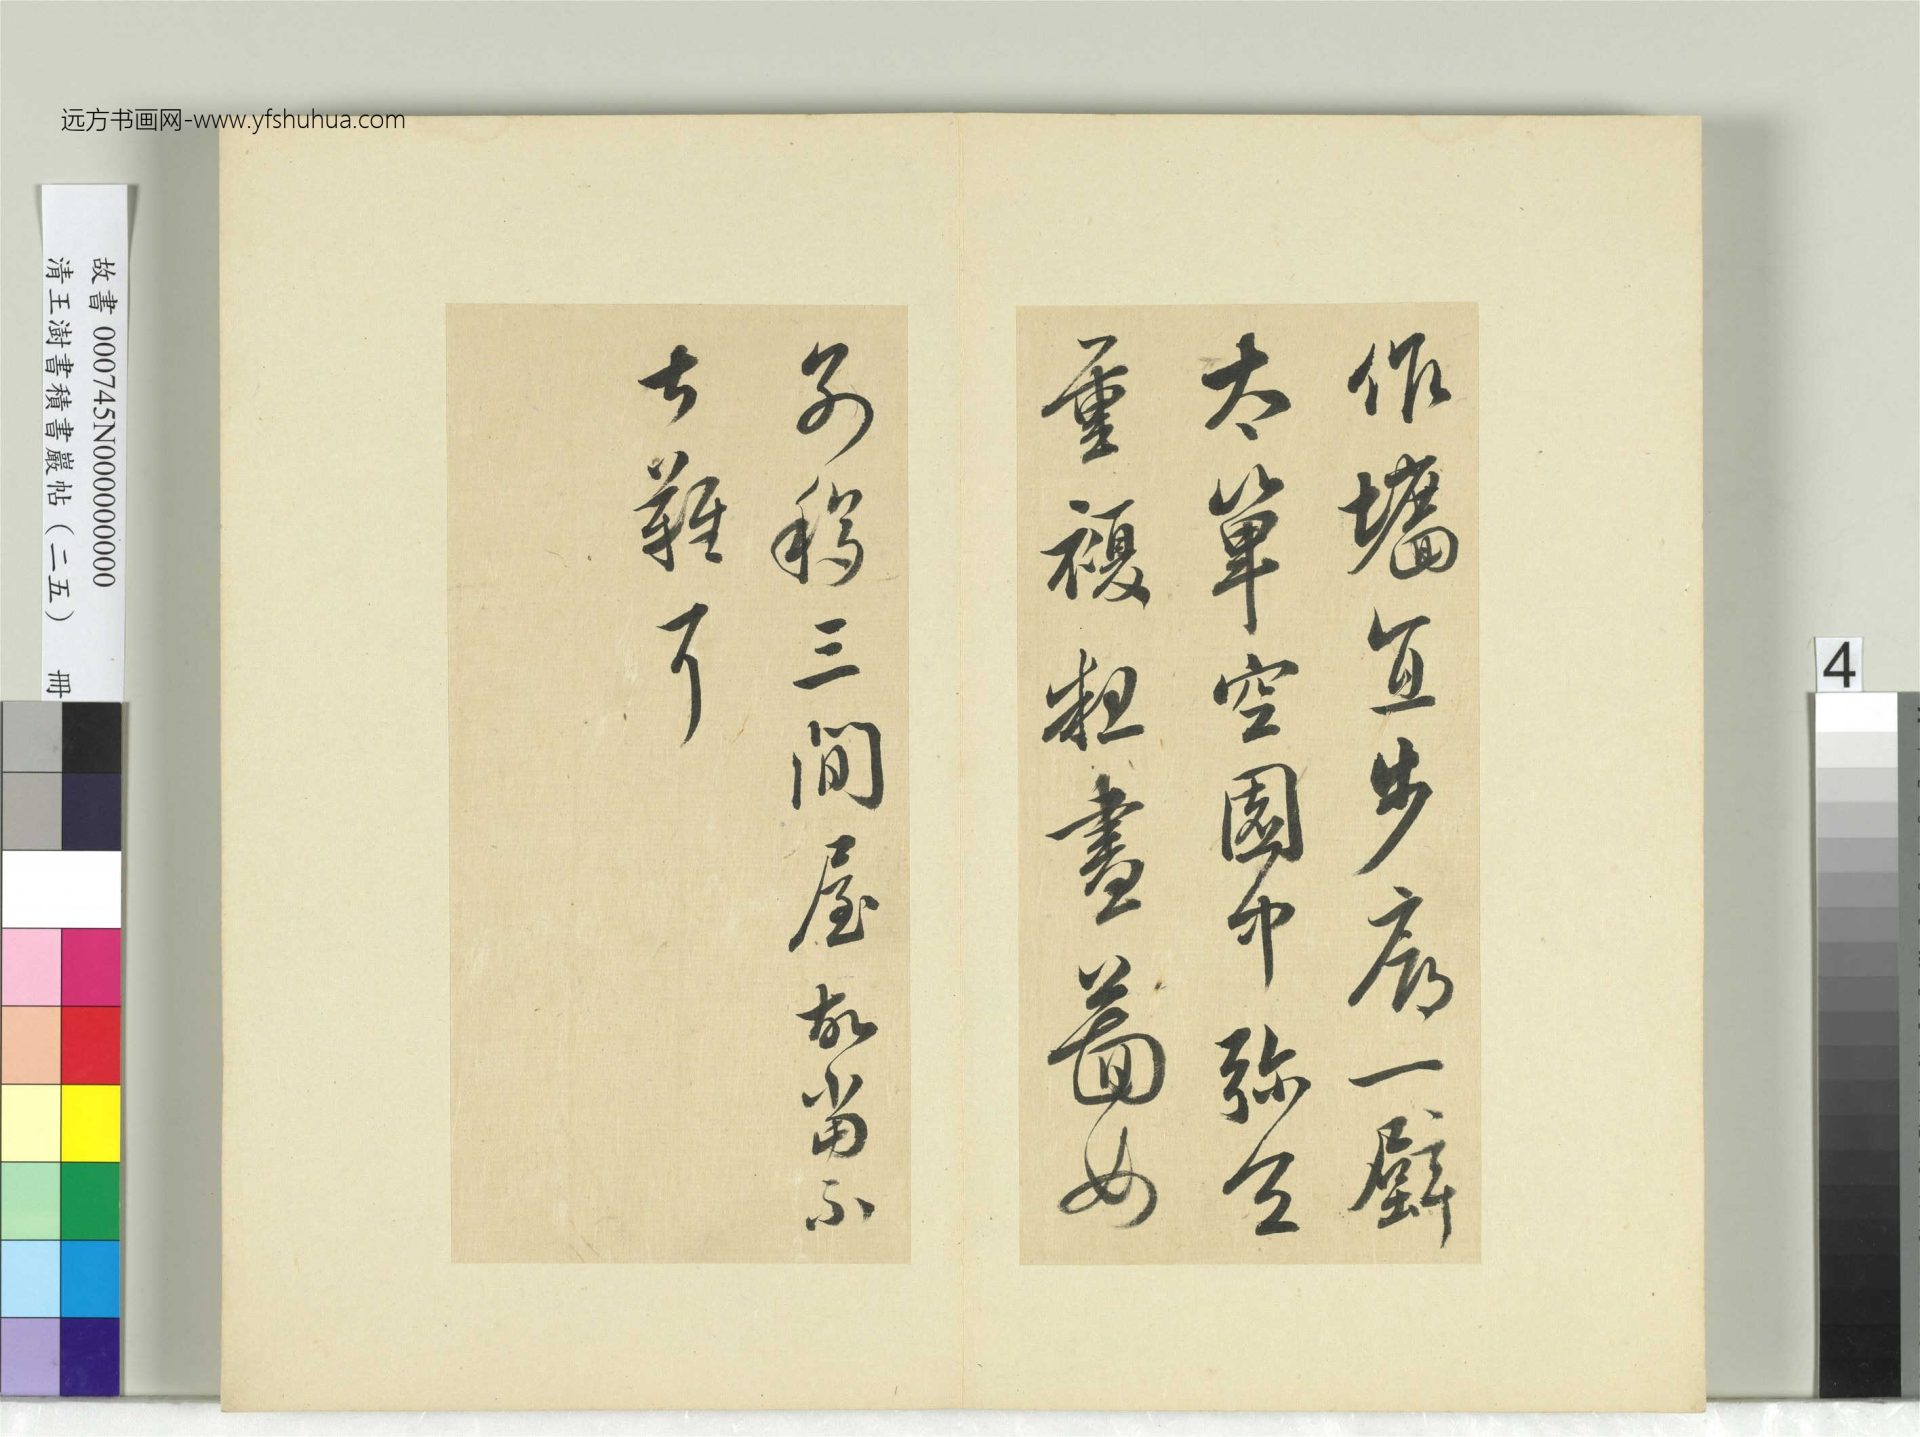 远方书画网-www.yfshuhua.com
故書 000745N000000000
清王澍書積書巖帖（二五） 冊
4
作墻直步廊一壁
太單空園中弥令
重複粗畫圖如
別移三間屋故當不
大難耳